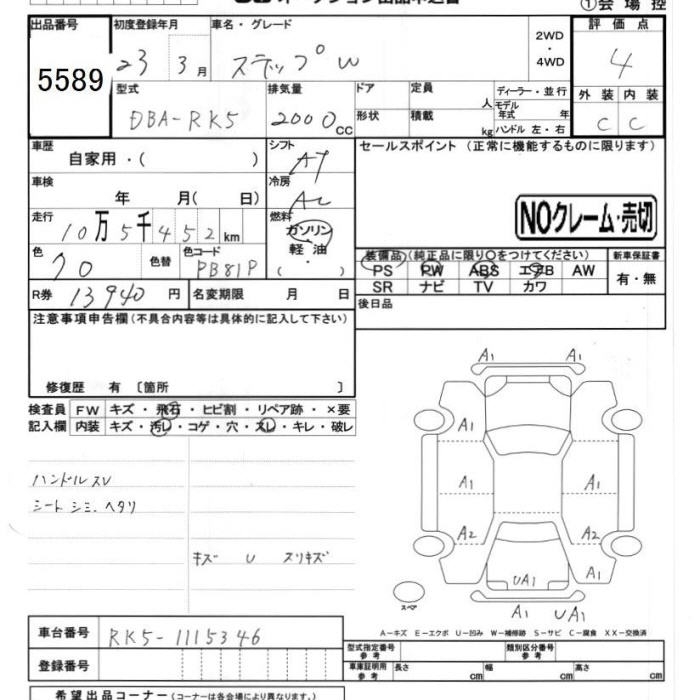 ①会場控
出品番号 初度登録年月 車名・グレード 2WD 評価点
5589 23 3月 ステップW ・ 4WD 4
型式 排気量 ドア 定員 ディーラー・並行 外装 内装
DBA-RK5 2000cc 形状 積載 人 モデル年式 年 C C
kg ハンドル 左・右
車歴 シフト セールスポイント (正常に機能するものに限ります)
自家用・( ) AT
車検 冷房
年 月( 日) AC
NOクレーム・売切
走行 燃料
10万5千452km ガソリン
軽・油
・( )
色 色替 色コード 装備品(純正品に限り○をつけてください) 新車保証書
クロ PB81P PS PW ABS エアB AW 有・無
SR ナビ TV カワ
R券 13940円 名変期限 月 日 後日品
注意事項申告欄(不具合内容等は具体的に記入して下さい)
修復歴 有 〔箇所 〕
検査員 FW キズ・飛石・ヒビ割・リペア跡・×要
記入欄 内装 キズ・汚レ・コゲ・穴・スレ・キレ・破レ
ハンドルスレ
シートシミ、ヘタリ
キズ U スリキズ
A1 A1
A1
A1 A1
A2 A2
A1
UA1
スペア
A1 UA1
A―キズ E―エクボ U―凹み W―補修跡 S―サビ C―腐食 XX―交換済
車台番号 RK5-1115346
型式指定番号 参考 類別区分番号 参考
登録番号 車庫証明用 参考 長さ cm 幅 cm 高さ cm
希望出品コーナー(コーナーは各会場により異なります。)